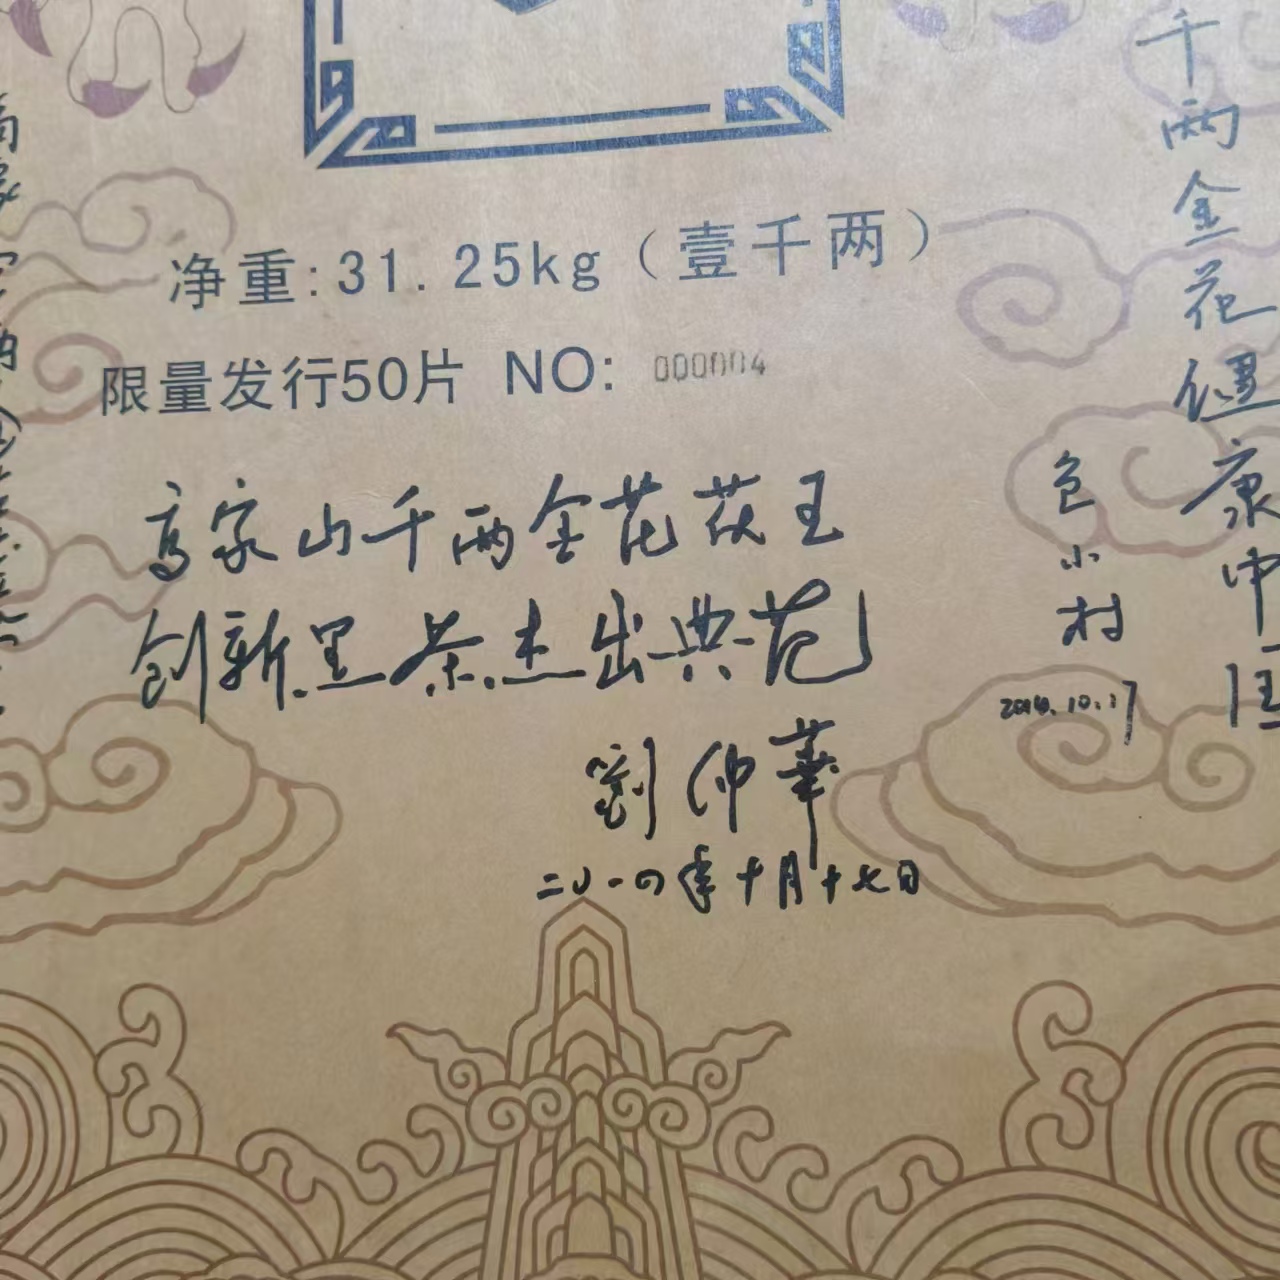 净重:31.25kg（壹千两）
限量发行50片 NO: 000004
高家山千两金花茯王
创新黑茶杰出典范
劉仲華
二〇一四年十月十七日
千两金花健康中国
包小村
2014.10.17